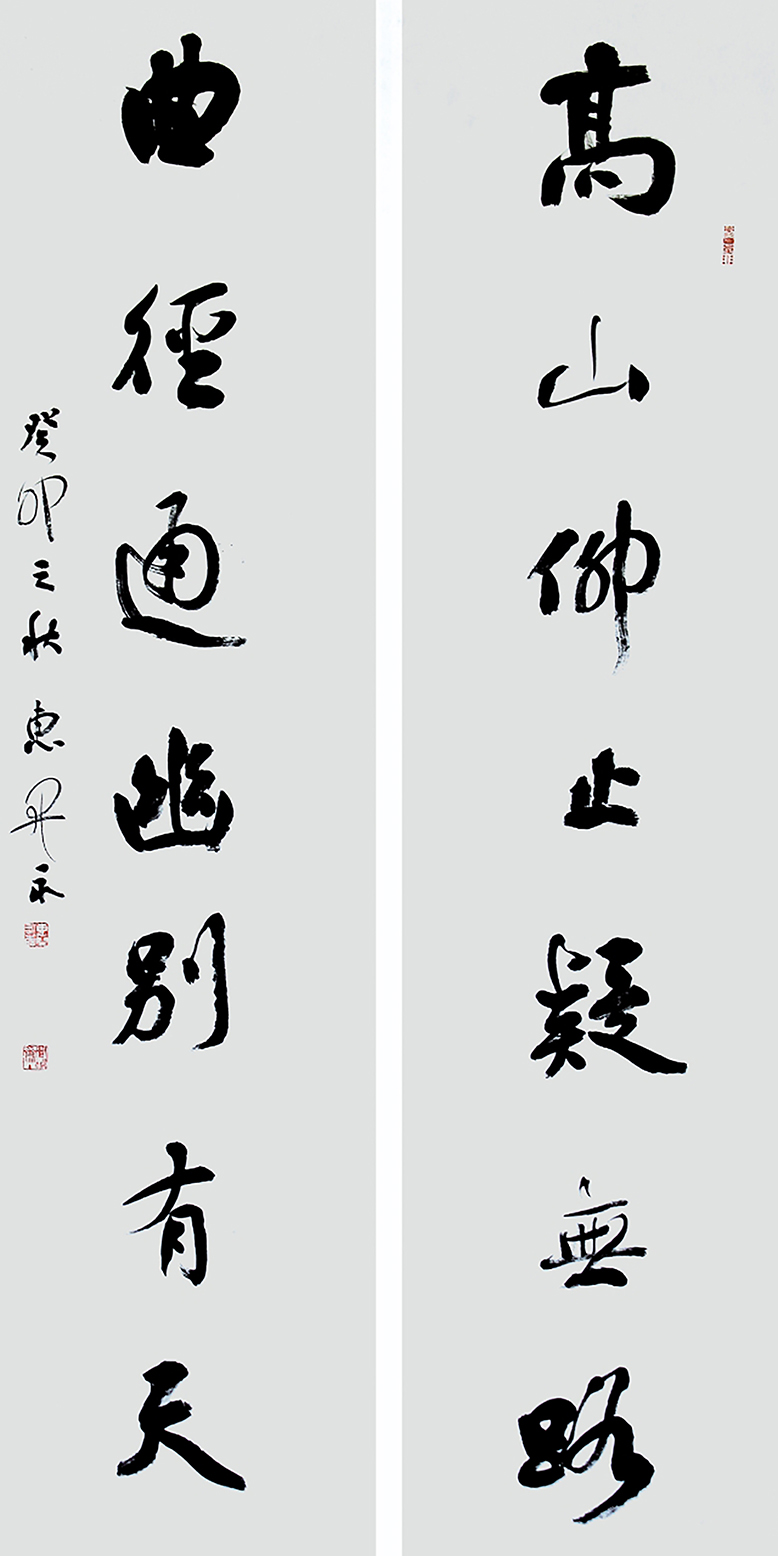 高山仰止疑無路
曲徑通幽別有天
癸卯之秋 惠昇永